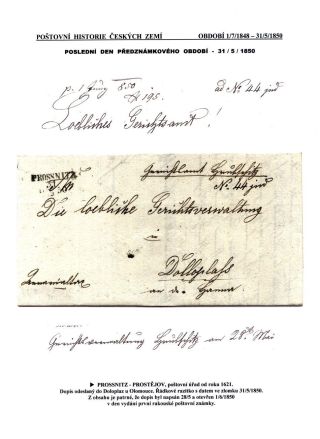 POŠTOVNÍ HISTORIE ČESKÝCH ZEMÍ OBDOBÍ 1/7/1848 – 31/5/1850
POSLEDNÍ DEN PŘEDZNÁMKOVÉHO OBDOBÍ - 31 / 5 / 1850
p. 1 Juny 850 ad No 44 jud
N 195.
Loebliches Gerichtsamt!
PROSSNITZ
Gerichtsamt
No. 44 jud
Die loebliche Gerichtsverwaltung
in
Dolloplass
an der Hanna
Gerichtsverwaltung am 28ten Mai
► PROSSNITZ - PROSTĚJOV, poštovní úřad od roku 1621.
Dopis odeslaný do Doloplaz u Olomouce. Řádkové razítko s datem ve zlomku 31/5/1850.
Z obsahu je patrné, že dopis byl napsán 28/5 a otevřen 1/6/1850
v den vydání první rakouské poštovní známky.